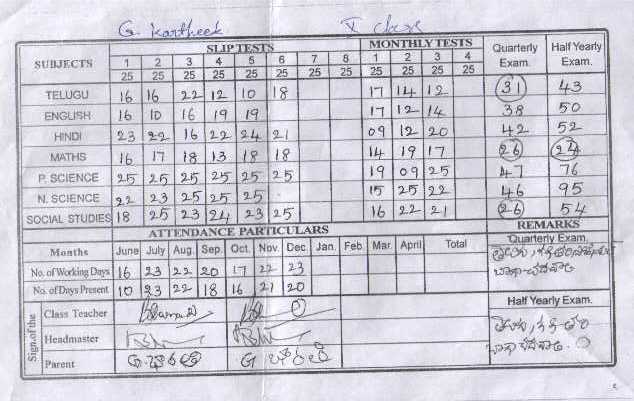 G. Kartheek V class
SUBJECTS SLIP TESTS MONTHLY TESTS Quarterly Exam. Half Yearly Exam.
1 2 3 4 5 6 7 8 1 2 3 4
25 25 25 25 25 25 25 25 25 25 25 25
TELUGU 16 16 22 12 10 18 17 14 12 31 43
ENGLISH 16 10 16 19 19 17 12 14 38 50
HINDI 23 22 16 22 24 21 09 12 20 42 52
MATHS 16 17 18 13 18 18 14 19 17 26 24
P. SCIENCE 25 25 25 25 25 25 19 09 25 47 76
N. SCIENCE 22 23 25 25 25 15 25 22 46 95
SOCIAL STUDIES 18 25 23 24 23 25 16 22 21 26 54
ATTENDANCE PARTICULARS REMARKS
Months June July Aug. Sep. Oct. Nov. Dec. Jan. Feb Mar. April Total Quarterly Exam.
No. of Working Days 16 23 22 20 17 22 23
No. of Days Present 10 23 22 18 16 21 20
Sign. of the Class Teacher Half Yearly Exam.
Headmaster
Parent